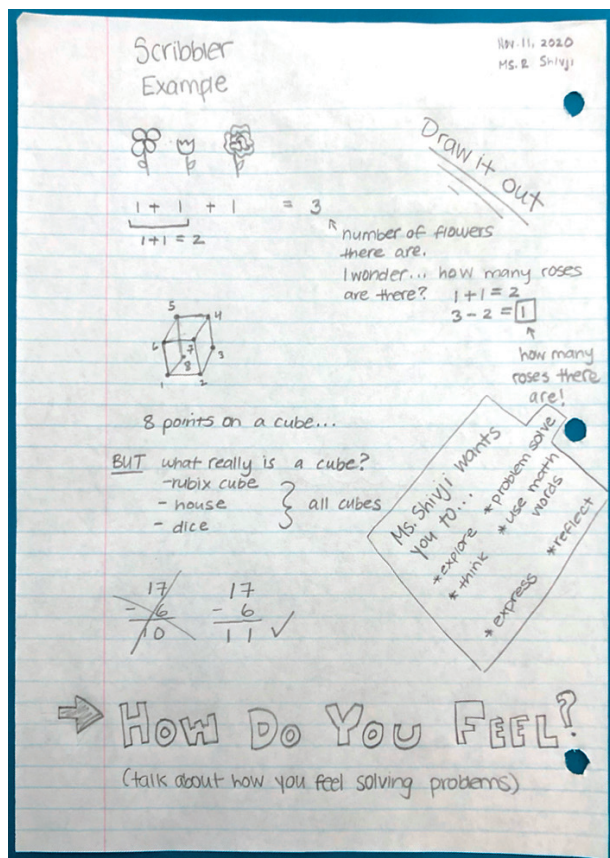 Scribbler
Example
Nov. 11, 2020
Ms. R Shivji
Draw it out
1 + 1 + 1 = 3
1+1 = 2
number of flowers
there are.
I wonder... how many roses
are there? 1+1=2
3-2=1
how many
roses there
are!
5
4
6
7
3
8
1
2
8 points on a cube...
BUT what really is a cube?
-rubix cube
- house
- dice
all cubes
Ms. Shivji wants
you to...
*explore
*think
*express
*problem solve
*use math
words
*reflect
17
- 6
10
17
- 6
11
How Do You Feel?
(talk about how you feel solving problems)